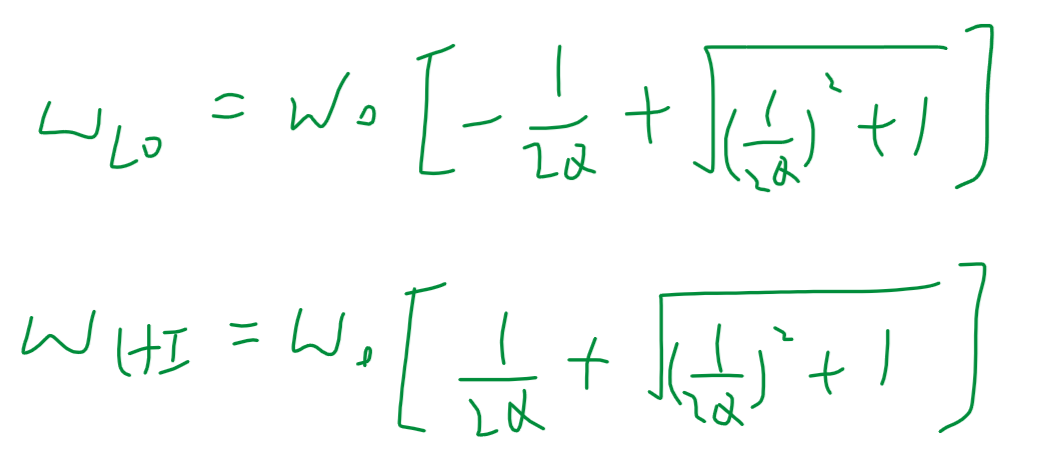 ω_LO = ω₀ [ - 1/(2Q) + √((1/(2Q))² + 1) ]
ω_HI = ω₀ [ 1/(2Q) + √((1/(2Q))² + 1) ]